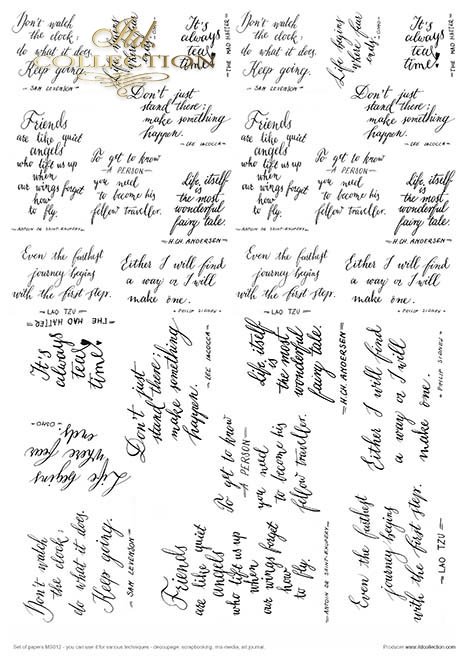 Don't watch
the clock;
do what it does.
Keep going.
~ SAM LEVENSON ~
Life begins
where fear
ends.
ITD
COLLECTION
It's
always
tea
time.
~ THE MAD HATTER ~
Don't watch
the clock;
do what it does.
Keep going.
~ SAM LEVENSON ~
Life begins
where fear
ends.
~ OSHO ~
It's
always
tea
time.
~ THE MAD HATTER ~
Don't just
stand there;
make something
happen.
~ LEE IACOCCA ~
Don't just
stand there;
make something
happen.
~ LEE IACOCCA ~
Friends
are like quiet
angels
who lift us up
when
our wings forget
how
to fly.
~ ANTOINE DE SAINT-EXUPERY ~
To get to know
~ A PERSON ~
you need
to become his
fellow traveller.
Life itself
is
the most
wonderful
fairy tale.
~ H.CH. ANDERSEN ~
Friends
are like quiet
angels
who lift us up
when
our wings forget
how
to fly.
~ ANTOINE DE SAINT-EXUPERY ~
To get to know
~ A PERSON ~
you need
to become his
fellow traveller.
Life itself
is
the most
wonderful
fairy tale.
~ H.CH. ANDERSEN ~
Even the farthest
journey begins
with the first step.
~ LAO TZU ~
Either I will find
a way or I will
make one.
~ PHILIP SIDNEY ~
Even the farthest
journey begins
with the first step.
~ LAO TZU ~
Either I will find
a way or I will
make one.
~ PHILIP SIDNEY ~
~ THE MAD HATTER ~
It's
always
tea
time.
Don't just
stand there;
make something
happen.
~ LEE IACOCCA ~
Life itself
is
the most
wonderful
fairy tale.
~ H.CH. ANDERSEN ~
Either I will find
a way or I will
make one.
~ PHILIP SIDNEY ~
Life begins
where fear
ends.
~ OSHO ~
To get to know
~ A PERSON ~
you need
to become his
fellow traveller.
Don't watch
the clock;
do what it does.
Keep going.
~ SAM LEVENSON ~
Friends
are like quiet
angels
who lift us up
when
our wings forget
how
to fly.
~ ANTOINE DE SAINT-EXUPERY ~
Even the farthest
journey begins
with the first step.
~ LAO TZU ~
Set of papers MS012 - you can use it for various techniques - decoupage, scrapbooking, mix media, art journal.
Producer www.itdcollection.com